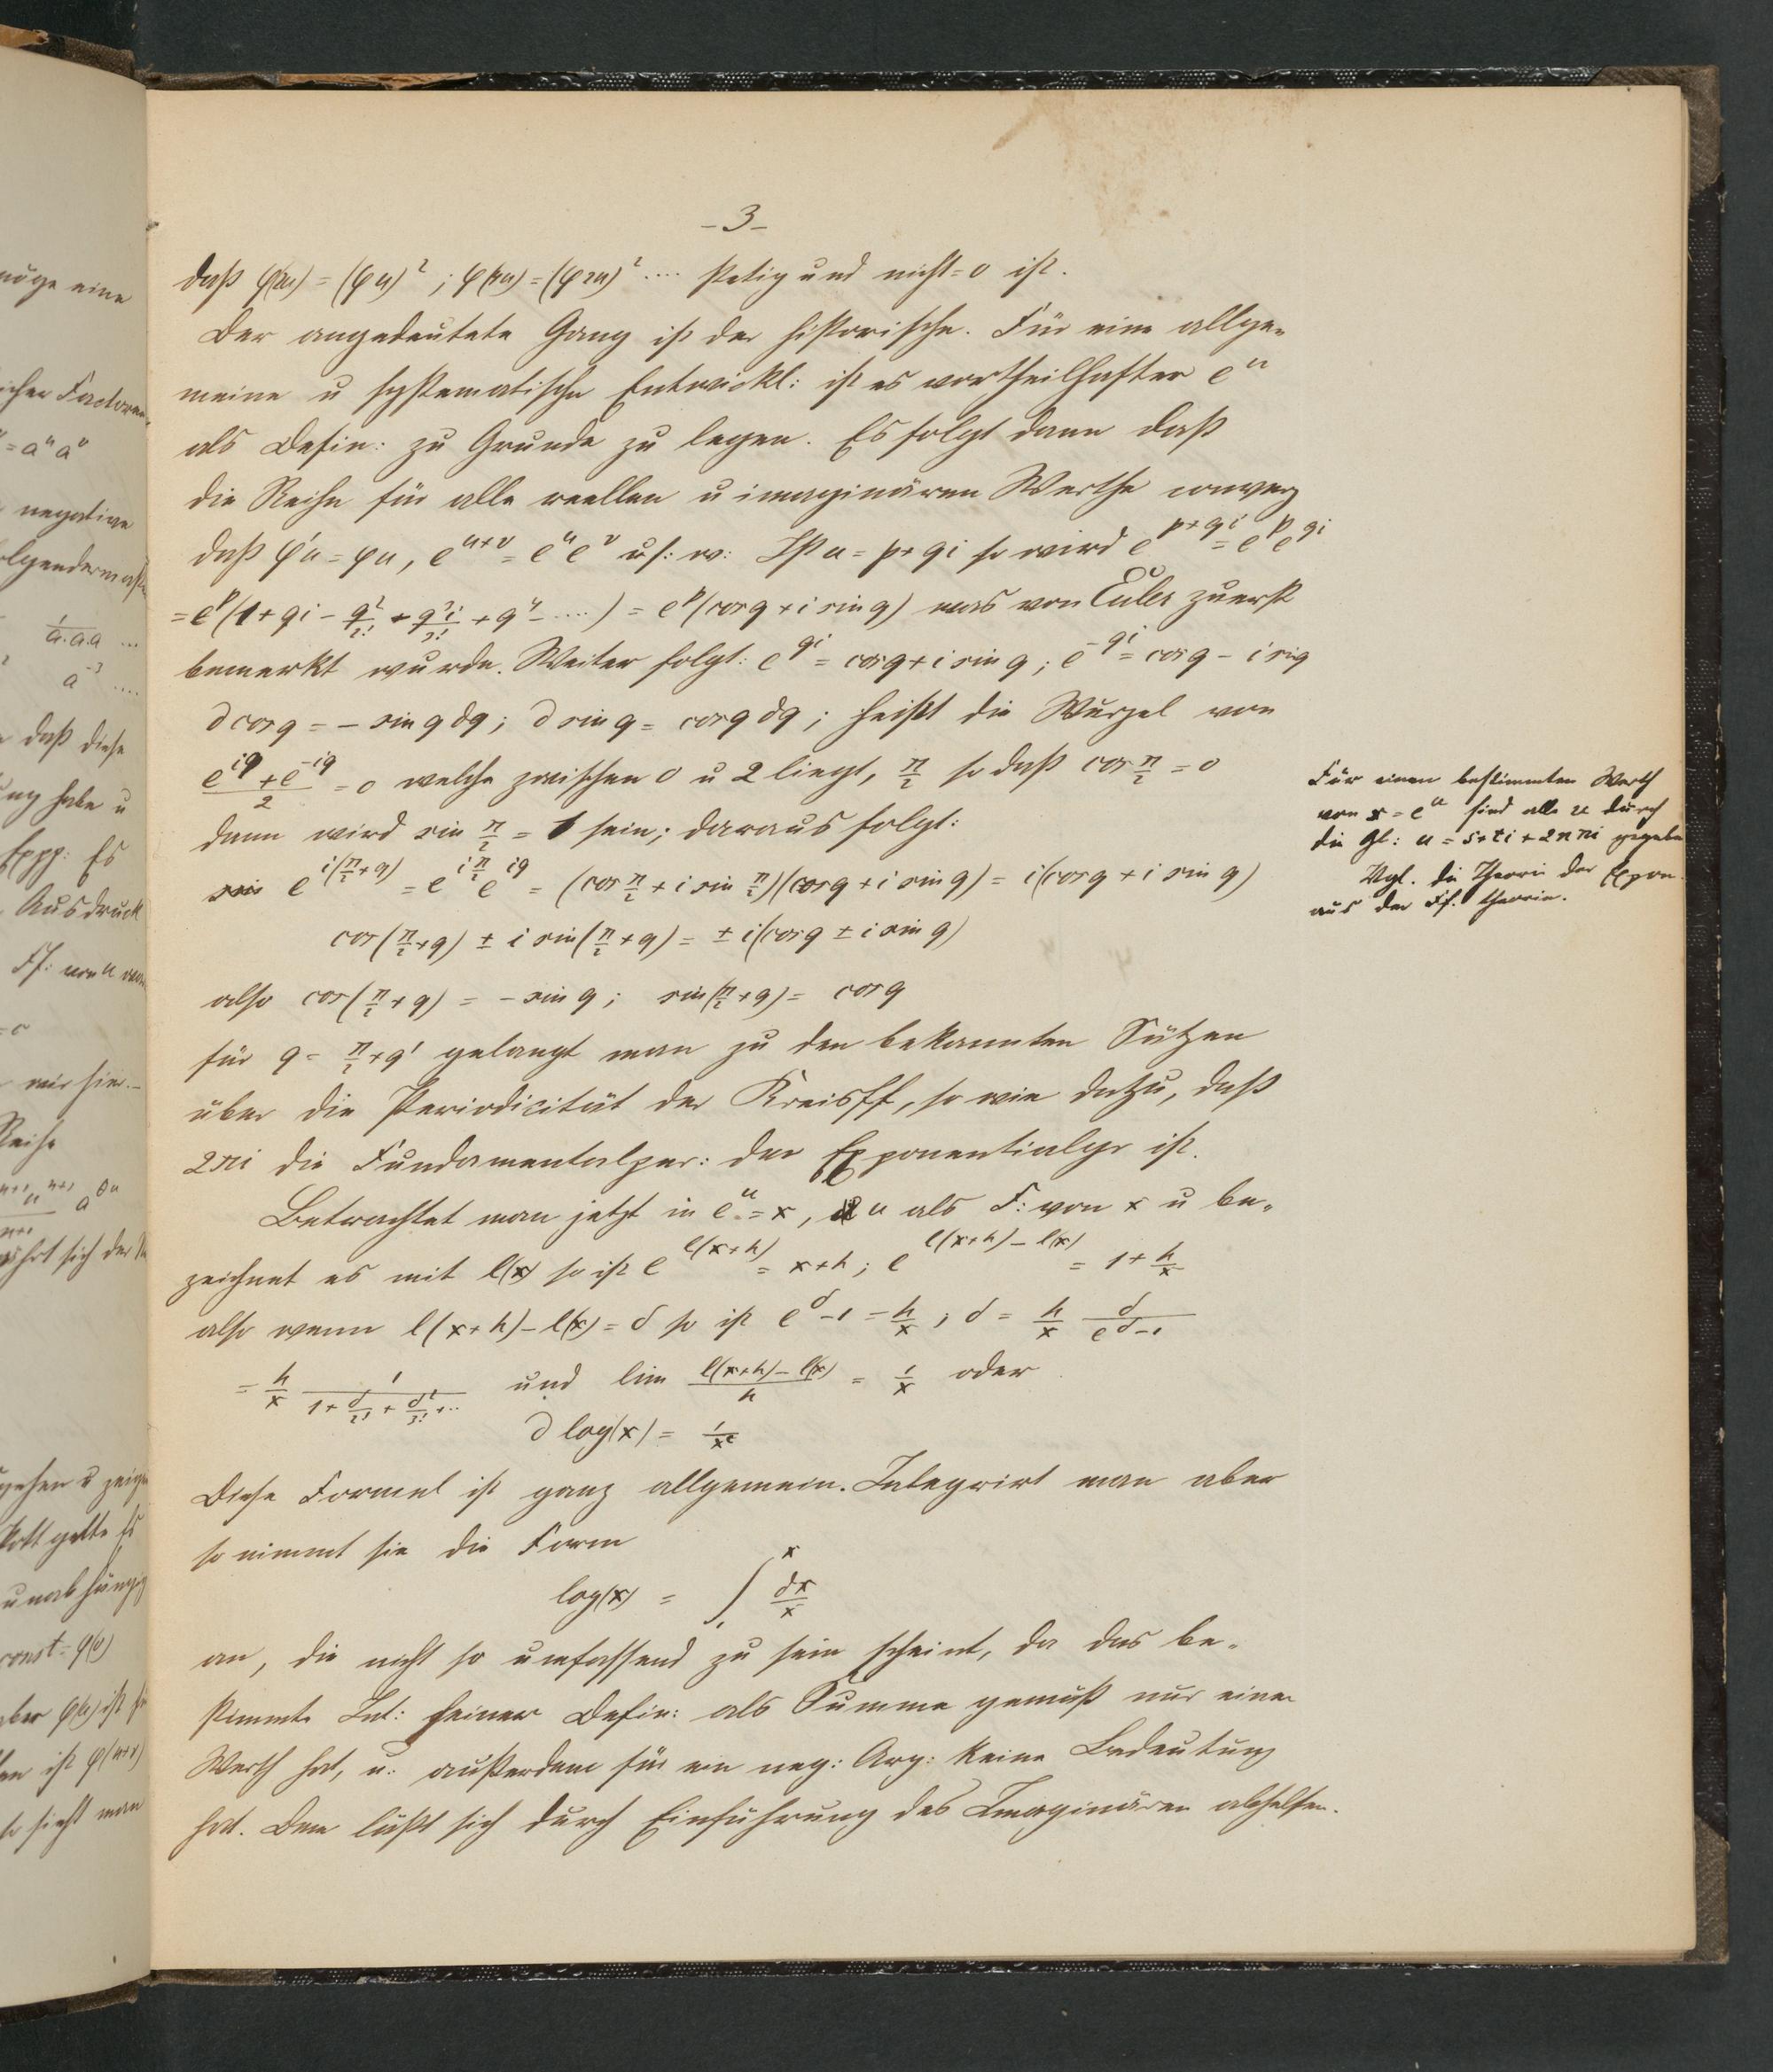 -3-
daß φ(2u) = (φu)²; φ(4u) = (φ2u)² .... stetig und nicht = 0 ist.
Der angedeutete Gang ist der historische. Für eine allge-
meine u systematische Entwickl: ist es vortheilhafter e^u
als Defin: zu Grunde zu legen. Es folgt dann daß
die Reihe für alle reellen u imaginären Werthe converg
daß φ'u = φu, e^{u+v} = e^u e^v u s: w: Ist u = p+qi so wird e^{p+qi} = e^p e^{qi}
= e^p (1 + qi - q²/2! - q³i/3! + q⁴ - ....) = e^p (cos q + i sin q) was von Euler zuerst
bemerkt wurde. Weiter folgt: e^{qi} = cos q + i sin q; e^{-qi} = cos q - i sin q
∂ cos q = - sin q ∂q; ∂ sin q = cos q ∂q; heißt die Wurzel von
(e^{iq} + e^{-iq})/2 = 0 welche zwischen 0 u 2 liegt, π/2 so daß cos π/2 = 0
dann wird sin π/2 = 1 sein; daraus folgt:
sin e^{i(π/2+q)} = e^{iπ/2} e^{iq} = (cos π/2 + i sin π/2)(cos q + i sin q) = i(cos q + i sin q)
cos(π/2+q) ± i sin(π/2+q) = ± i(cos q ± i sin q)
also cos(π/2+q) = - sin q; sin(π/2+q) = cos q
für q = π/2+q' gelangt man zu den bekannten Sätzen
über die Periodicität der Kreisff, so wie dazu, daß
2πi die Fundamentalper: der Exponentialgr ist.
Betrachtet man jetzt in e^u = x, u als F: von x u be-
zeichnet es mit l(x) so ist e^{l(x+h)} = x+h; e^{l(x+h)-l(x)} = 1 + h/x
also wenn l(x+h) - l(x) = δ so ist e^δ - 1 = h/x; δ = h/x δ/(e^δ-1)
= h/x 1/(1 + δ/2! + δ²/3! + ..) und lim (l(x+h) - l(x))/h = 1/x oder
∂ log(x) = 1/x
Diese Formel ist ganz allgemein. Integrirt man aber
so nimmt sie die Form
log(x) = ∫₁^x dx/x
an, die nicht so umfassend zu sein scheint, da das be-
stimmte Int: seiner Defin: als Summe gemäß nur einen
Werth hat, u: außerdem für ein neg: Arg: keine Bedeutung
hat. Dem läßt sich durch Einführung des Imaginären abhelfen.
Für einen bestimmten Werth
von x = e^u sind alle u durch
die Gl: u = s+ti+2nπi gegeben
Vgl. die Theorie der Expon.
aus der Ff. theorie.